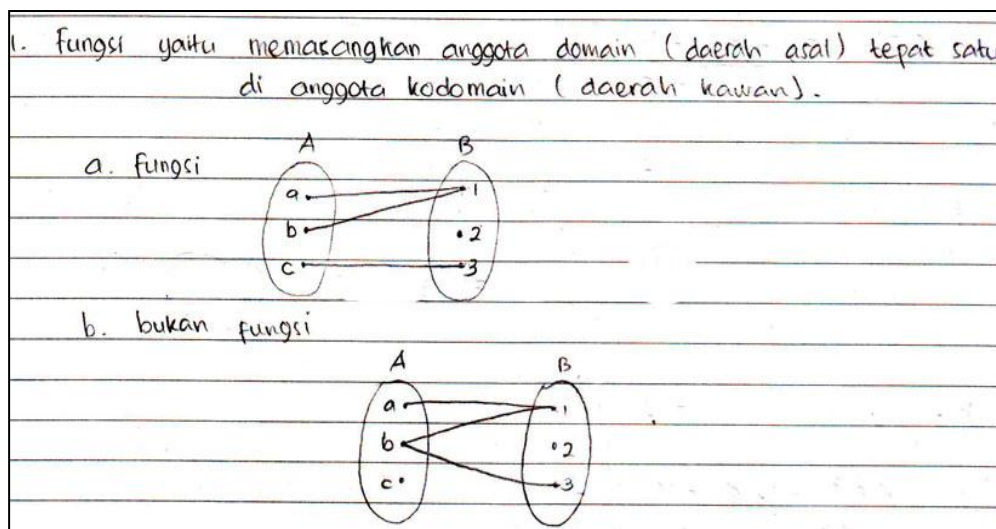 1. Fungsi yaitu memasangkan anggota domain (daerah asal) tepat satu
di anggota kodomain (daerah kawan).
a. fungsi
A B
a 1
b 2
c 3
b. bukan fungsi
A B
a 1
b 2
c 3